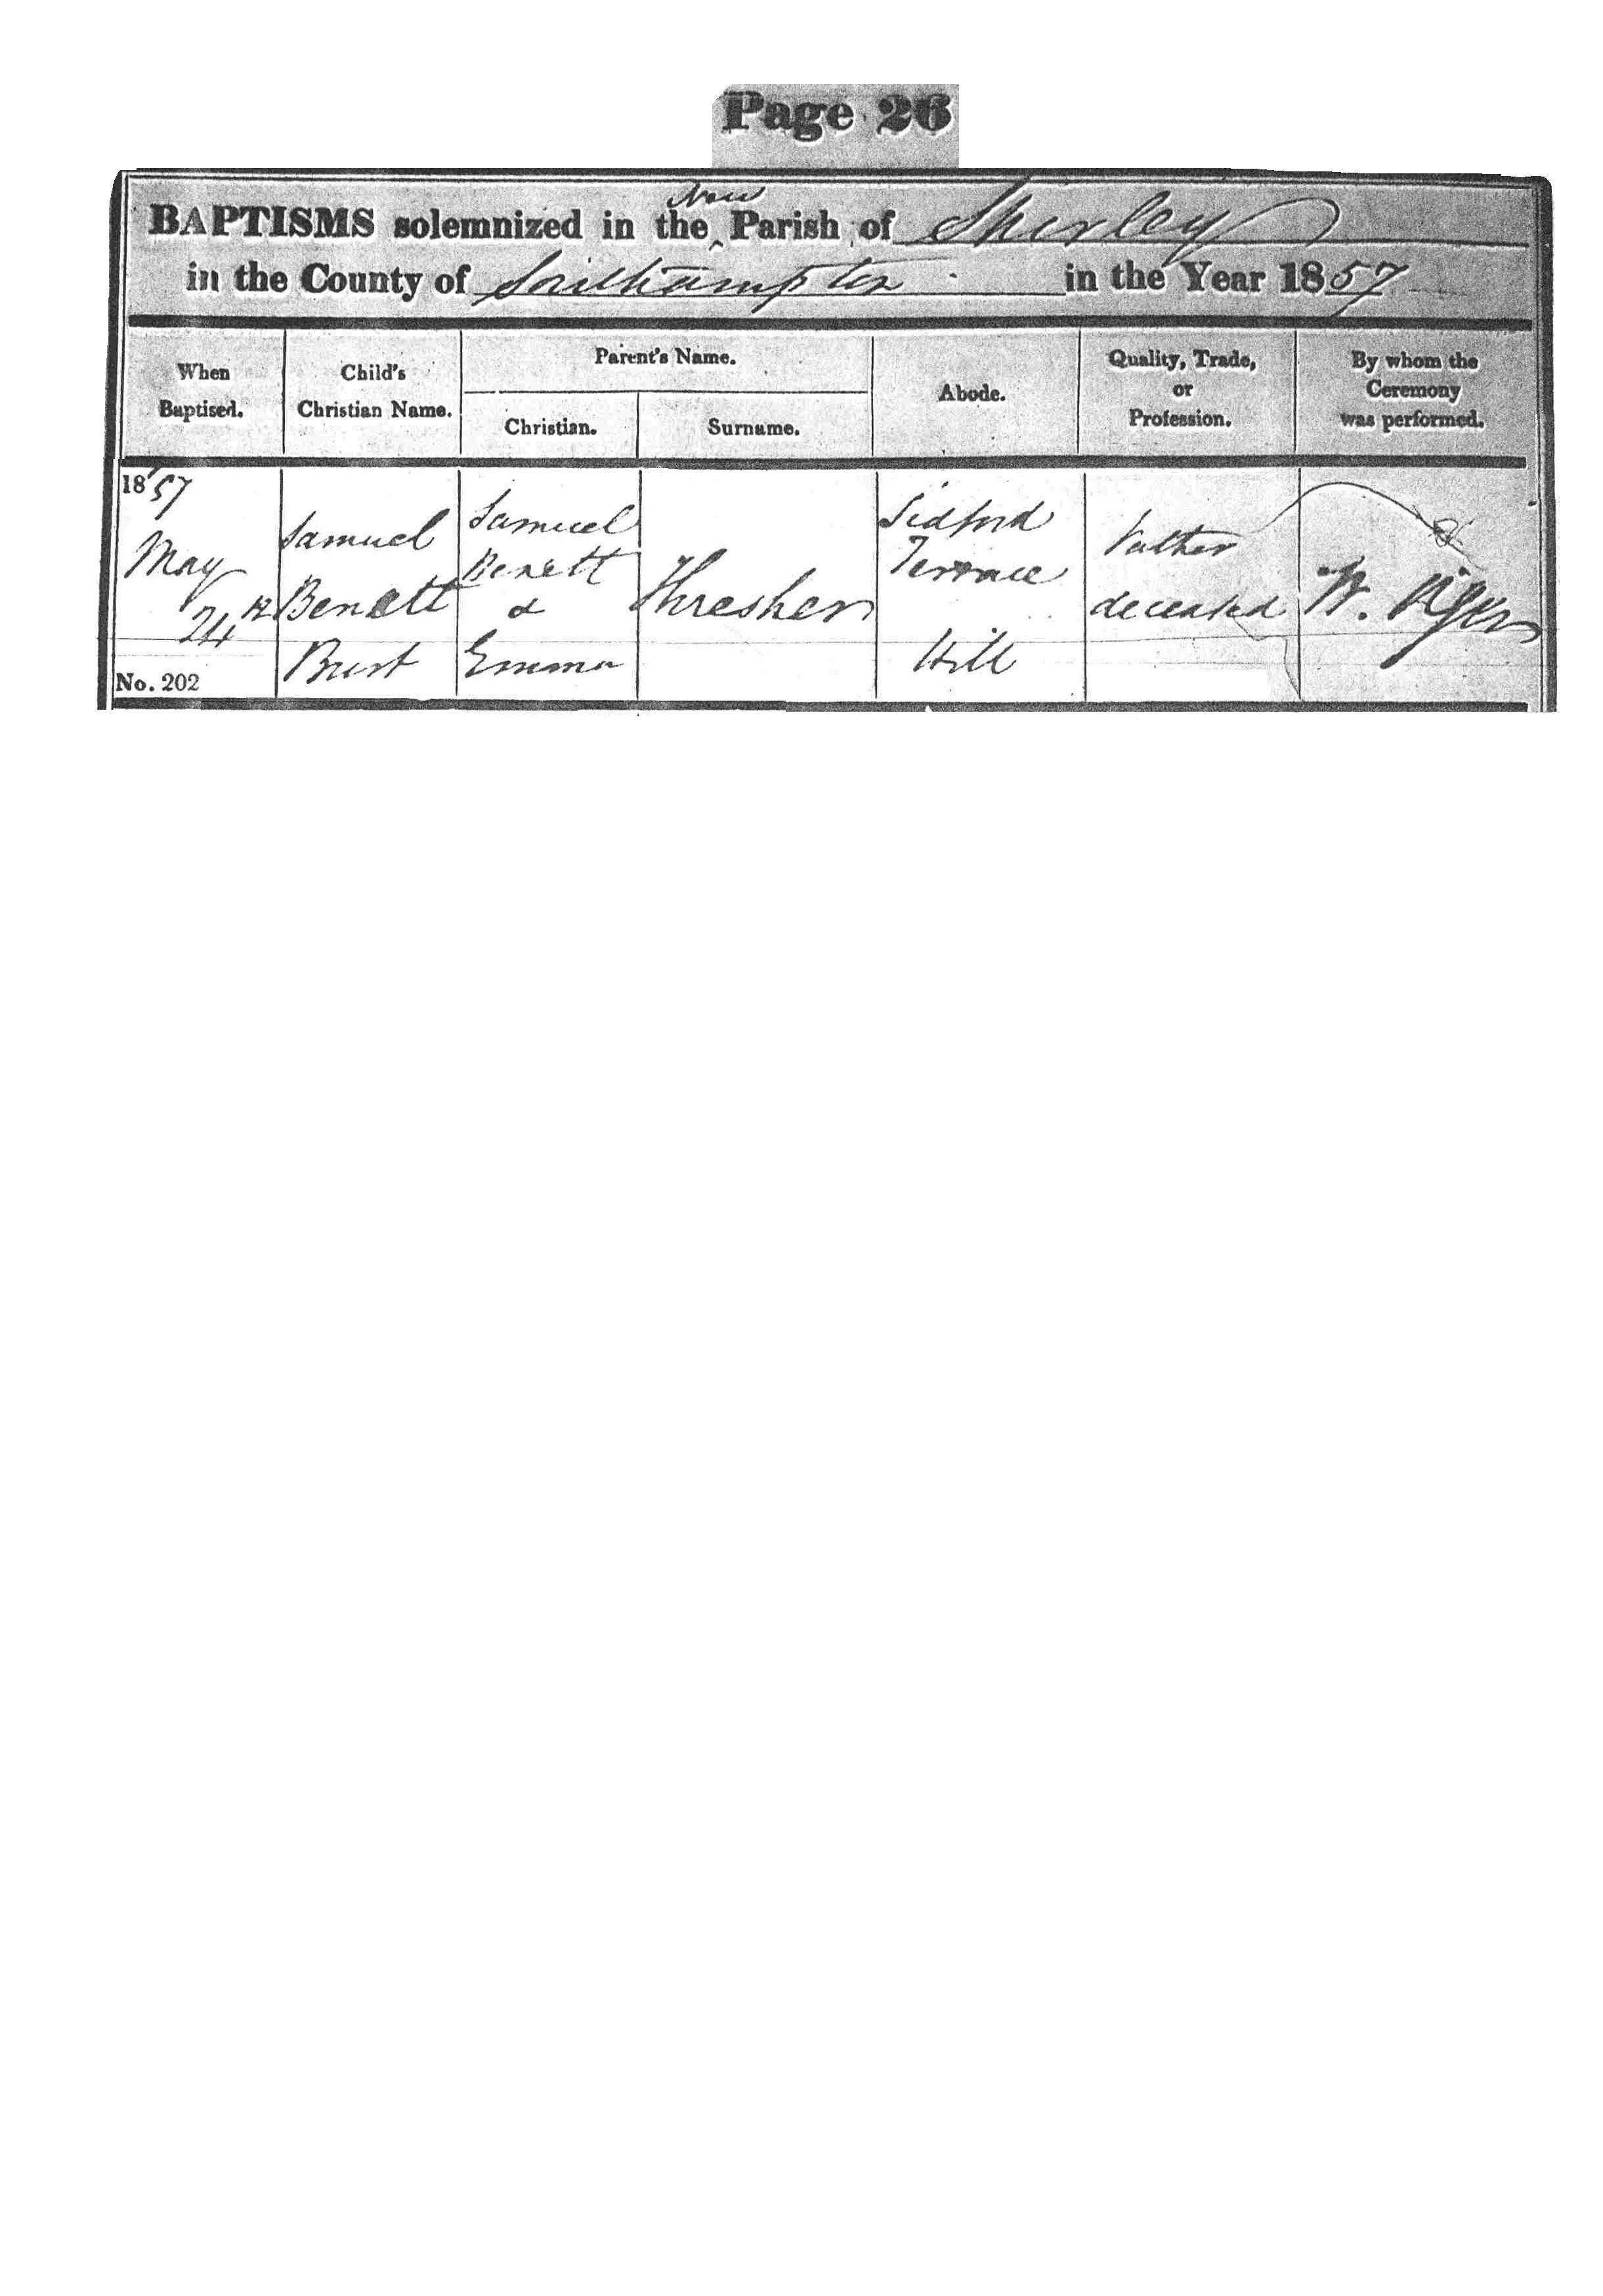 Page 26
BAPTISMS solemnized in the New Parish of Shirley
in the County of Southampton in the Year 1857
When
Baptised.
Child's
Christian Name.
Parent's Name.
Christian.
Surname.
Abode.
Quality, Trade,
or
Profession.
By whom the
Ceremony
was performed.
1857
May
24th
No. 202
Samuel
Benett
Burt
Samuel
Benett
&
Emma
Thresher
Sidford
Terrace
Hill
Father
deceased
W.